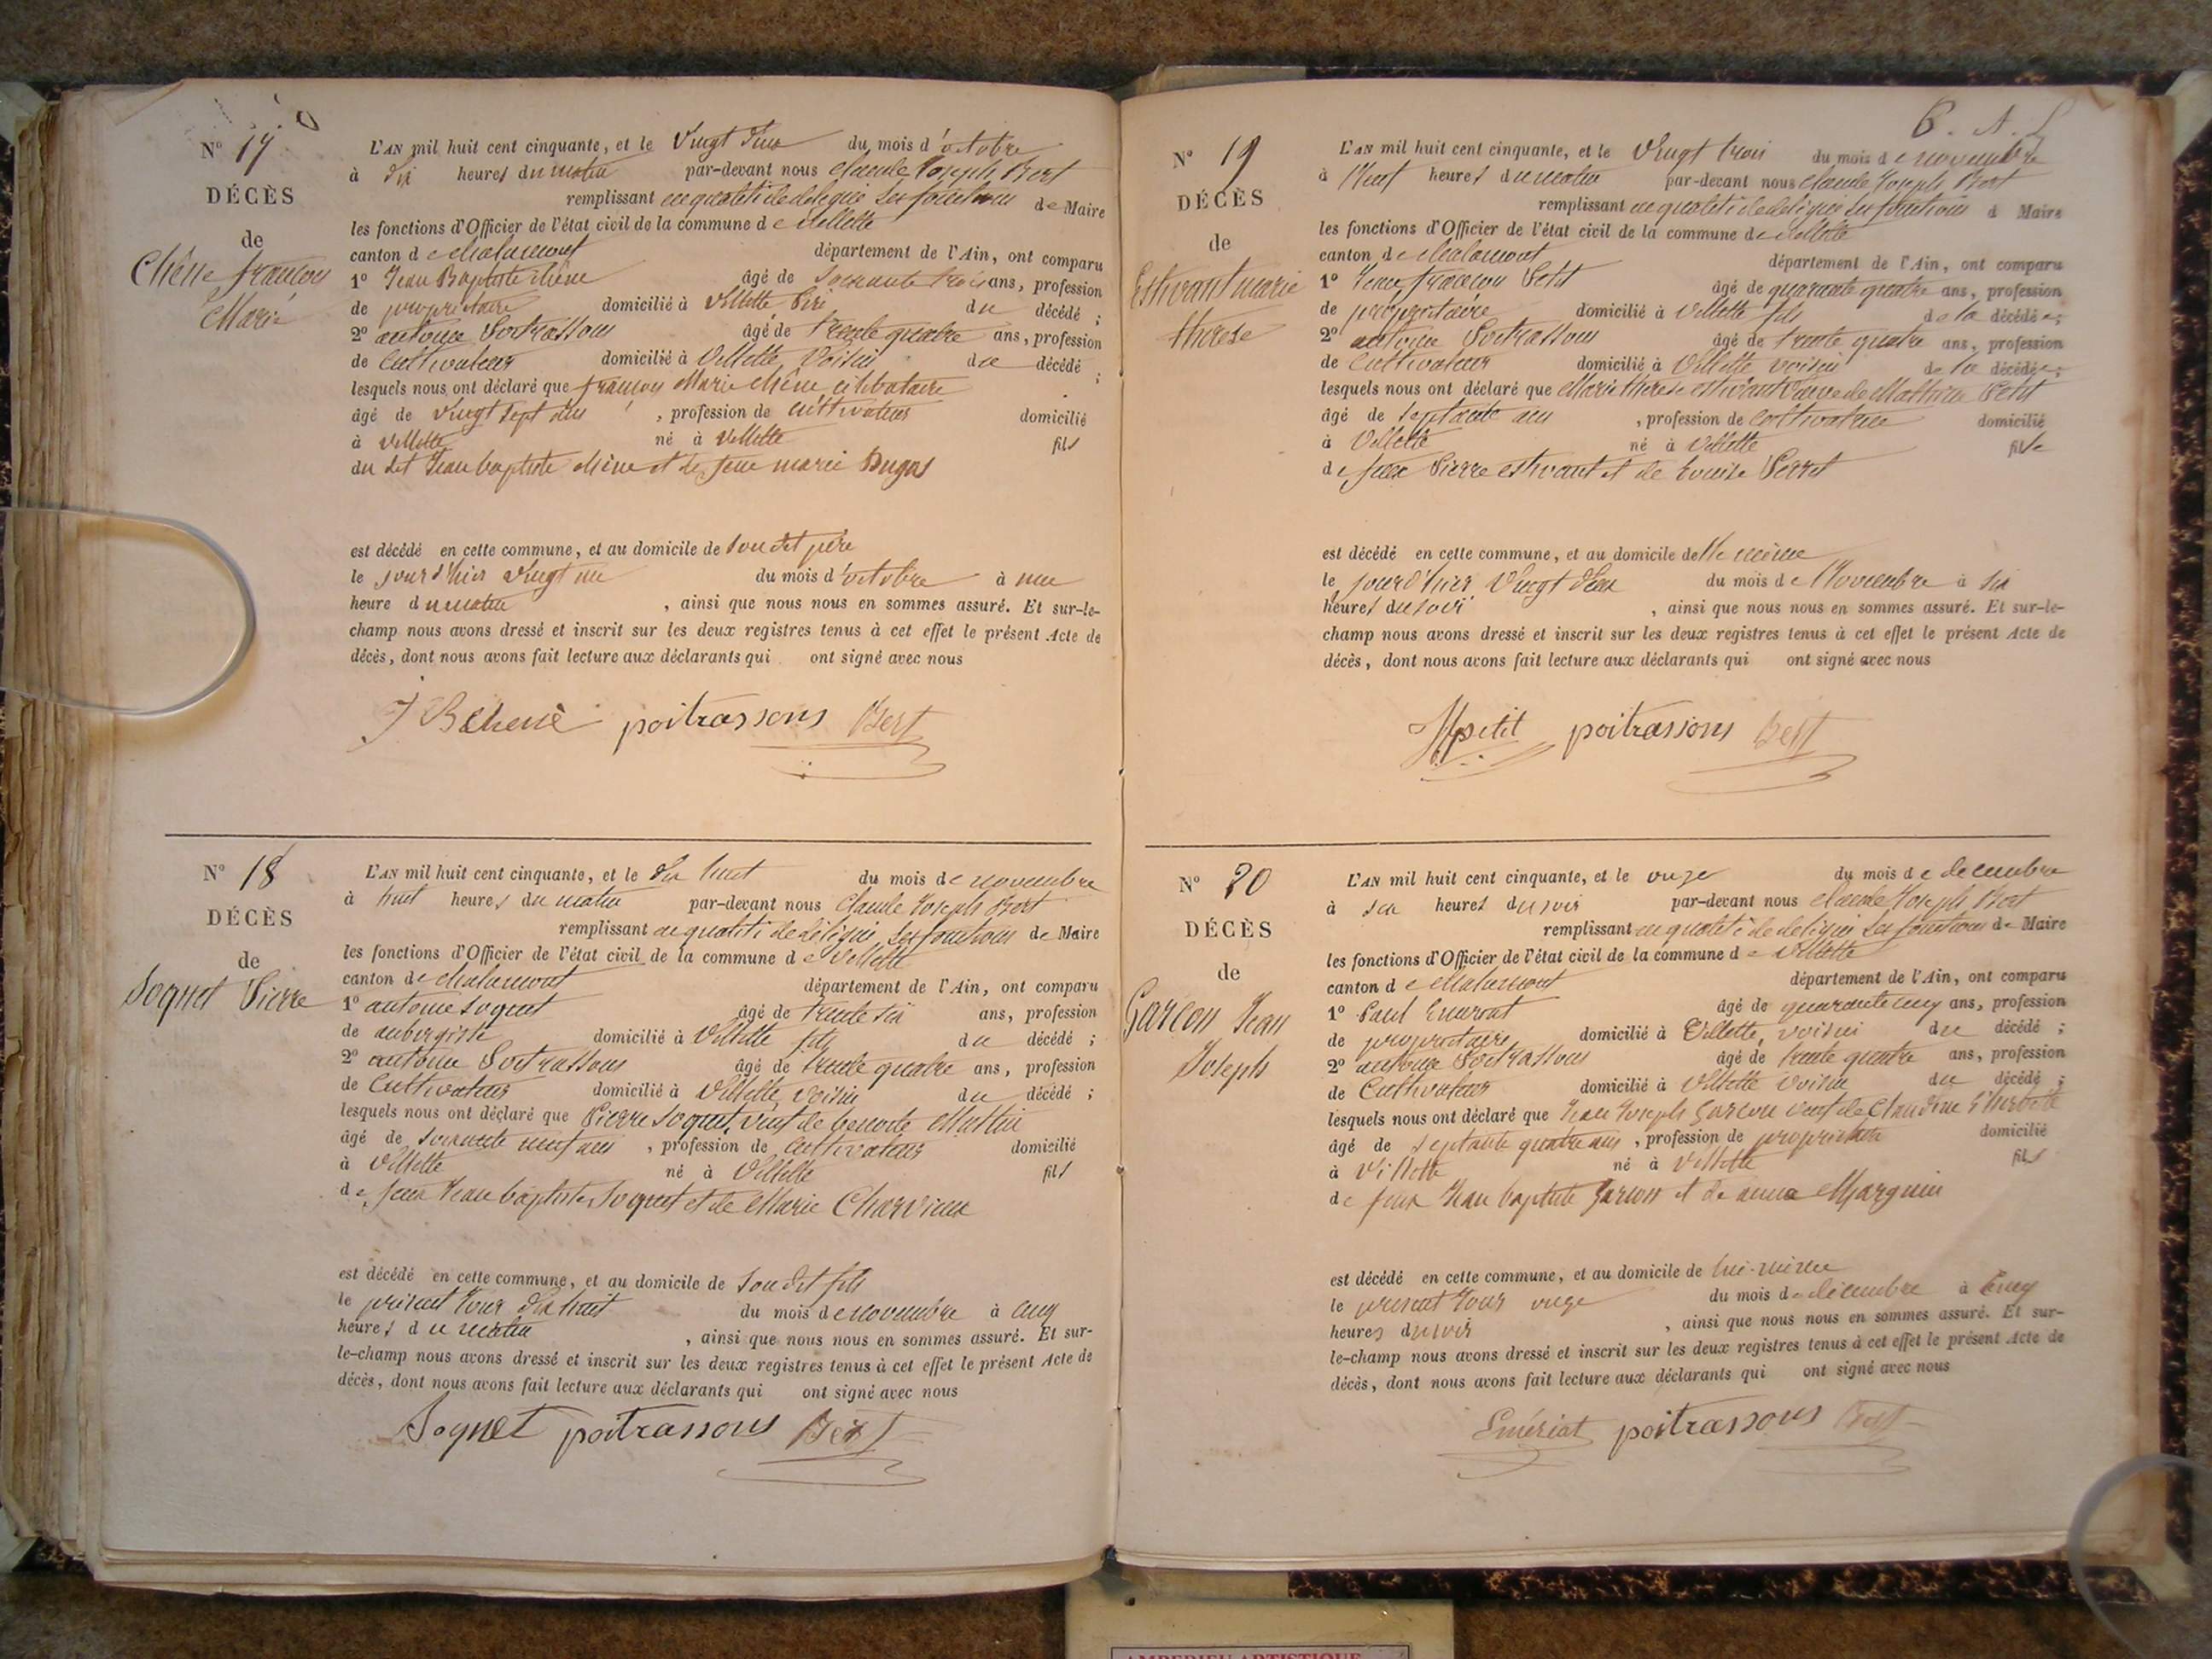 N° 17
DÉCÈS
de
Chêne françois
Marie
L'AN mil huit cent cinquante, et le Vingt deux du mois d'octobre
à dix heures du matin par-devant nous Claude Joseph Bert
remplissant en qualité de délégué les fonctions de Maire
les fonctions d'Officier de l'état civil de la commune de Villette
canton de Chalamont département de l'Ain, ont comparu
1° Jean Baptiste chêne âgé de soixante trois ans, profession
de propriétaire domicilié à Villette, Père du décédé ;
2° antoine Poitrassons âgé de trente quatre ans, profession
de Cultivateur domicilié à Villette Voisin du décédé ;
lesquels nous ont déclaré que françois Marie chêne célibataire
âgé de Vingt sept ans , profession de cultivateur domicilié
à Villette né à Villette fils
du dit Jean baptiste chêne et de feue marie Dugas
est décédé en cette commune, et au domicile de son dit père
le jour d'hier vingt un du mois d'octobre à une
heure du matin , ainsi que nous nous en sommes assuré. Et sur-le-
champ nous avons dressé et inscrit sur les deux registres tenus à cet effet le présent Acte de
décès, dont nous avons fait lecture aux déclarants qui ont signé avec nous
J B chene poitrassons Bert
N° 18
DÉCÈS
de
Soquet Pierre
L'AN mil huit cent cinquante, et le dix huit du mois de novembre
à huit heures du matin par-devant nous Claude Joseph Bert
remplissant en qualité de délégué les fonctions de Maire
les fonctions d'Officier de l'état civil de la commune de Villette
canton de Chalamont département de l'Ain, ont comparu
1° antoine Soquet âgé de trente six ans, profession
de aubergiste domicilié à Villette fils du décédé ;
2° antoine Poitrassons âgé de trente quatre ans, profession
de Cultivateur domicilié à Villette, voisin du décédé ;
lesquels nous ont déclaré que Pierre Soquet, veuf de benoite
âgé de soixante neuf ans , profession de cultivateur domicilié
à Villette né à Villette fils
de feux Jean baptiste Soquet et de Marie Charvieux
est décédé en cette commune, et au domicile de son dit fils
le présent jour dix huit du mois de novembre à cinq
heures du matin , ainsi que nous nous en sommes assuré. Et sur-
le-champ nous avons dressé et inscrit sur les deux registres tenus à cet effet le présent Acte de
décès, dont nous avons fait lecture aux déclarants qui ont signé avec nous
Soquet poitrassons Bert
N° 19
DÉCÈS
de
Estivant marie
thérèse
L'AN mil huit cent cinquante, et le Vingt trois du mois de novembre
à Neuf heures du matin par-devant nous Claude Joseph Bert
remplissant en qualité de délégué les fonctions d Maire
les fonctions d'Officier de l'état civil de la commune de Villette
canton de Chalamont département de l'Ain, ont comparu
1° Jean françois Petit âgé de quarante quatre ans, profession
de propriétaire domicilié à Villette fils de la décédée;
2° antoine Poitrassons âgé de trente quatre ans, profession
de Cultivateur domicilié à Villette voisin de la décédée;
lesquels nous ont déclaré que Marie thérèse estivant Veuve de Mathieu Petit
âgé de septante ans , profession de cultivatrice domicilié
à Villette né à Villette fille
de feux Pierre estivant et de Louise Perret
est décédé en cette commune, et au domicile d'elle même
le jour d'hier Vingt deux du mois de Novembre à six
heures du soir , ainsi que nous nous en sommes assuré. Et sur-le-
champ nous avons dressé et inscrit sur les deux registres tenus à cet effet le présent Acte de
décès, dont nous avons fait lecture aux déclarants qui ont signé avec nous
petit poitrassons Bert
N° 20
DÉCÈS
de
Garçon Jean
Joseph
L'AN mil huit cent cinquante, et le onze du mois de decembre
à six heures du soir par-devant nous Claude Joseph Bert
remplissant en qualité de délégué les fonctions de Maire
les fonctions d'Officier de l'état civil de la commune de Villette
canton de Chalamont département de l'Ain, ont comparu
1° Paul âgé de quarante cinq ans, profession
de propriétaire domicilié à Villette, voisin du décédé ;
2° antoine Poitrassons âgé de trente quatre ans, profession
de Cultivateur domicilié à Villette voisin du décédé ;
lesquels nous ont déclaré que Jean Joseph Garçon veuf de Claudine
âgé de septante quatre ans , profession de propriétaire domicilié
à Villette né à Villette fils
de feux Jean baptiste Garçon et de anne Marguin
est décédé en cette commune, et au domicile de lui-même
le présent jour onze du mois de décembre à cinq
heures du soir , ainsi que nous nous en sommes assuré. Et sur-
le-champ nous avons dressé et inscrit sur les deux registres tenus à cet effet le présent Acte de
décès, dont nous avons fait lecture aux déclarants qui ont signé avec nous
Emériat poitrassons Bert
AMBERIEU ARTISTIQUE